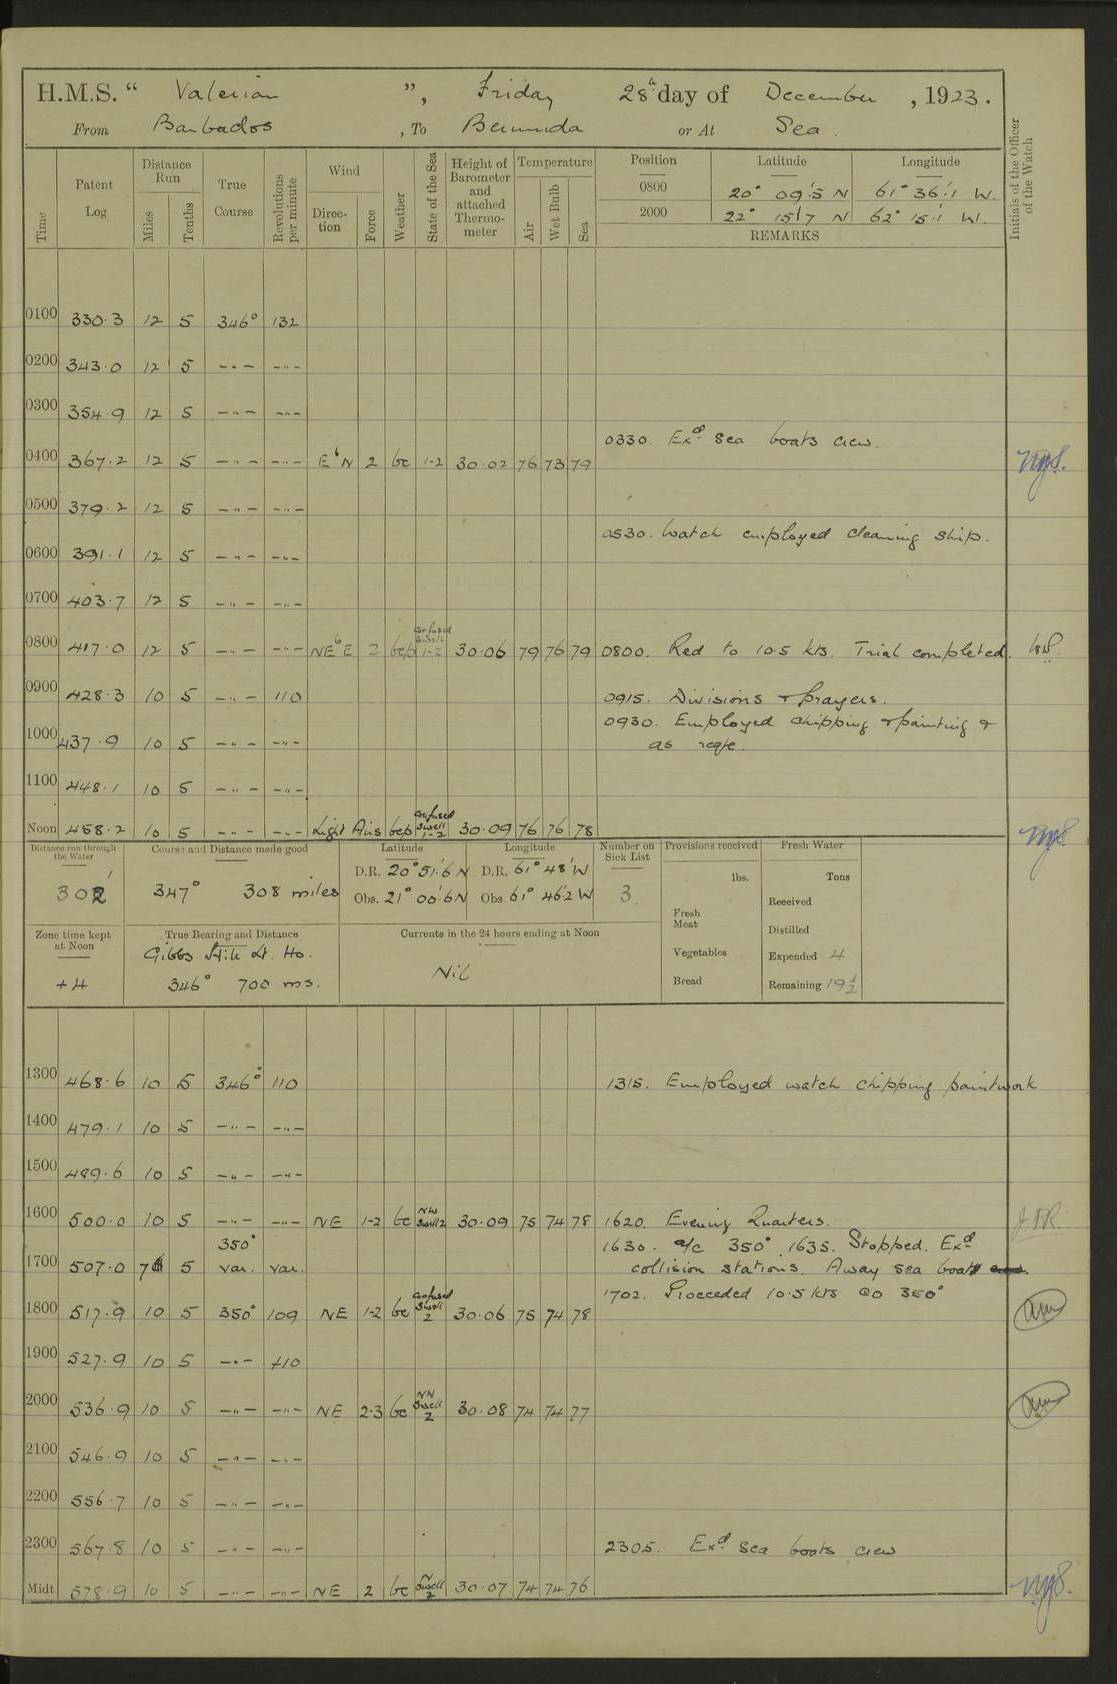 H.M.S. “ Valerian ”, Friday 28th day of December, 1923.
From Barbados, To Bermuda or At Sea.
Time Patent Log Distance Run Miles Tenths True Course Revolutions per minute Wind Direction Force Weather State of the Sea Height of Barometer and attached Thermometer Temperature Air Wet Bulb Sea Position Latitude Longitude Initials of the Officer of the Watch
0800 20° 09'.5 N 61° 36'.1 W.
2000 22° 15'.7 N 62° 15'.1 W.
REMARKS
0100 330.3 12 5 346° 132
0200 343.0 12 5 -"- -"-
0300 354.9 12 5 -"- -"-
0330. Exd sea boats crew.
0400 367.2 12 5 -"- -"- EbN 2 bc 1-2 30.02 76 73 79
0500 379.2 12 5 -"- -"-
0530. Watch employed cleaning ship.
0600 391.1 12 5 -"- -"-
0700 403.7 12 5 -"- -"-
0800 417.0 12 5 -"- -"- NEbE 2 bcp confused swell 1-2 30.06 79 76 79 0800. Red to 10.5 kts. Trial completed.
0900 428.3 10 5 -"- 110 0915. Divisions & prayers.
0930. Employed chipping & painting &
1000 437.9 10 5 -"- -"- as reqte.
1100 448.1 10 5 -"- -"-
Noon 458.2 10 5 -"- -"- Light Airs bcp confused swell 1-2 30.09 76 76 78
Distance run through the Water Course and Distance made good Latitude Longitude Number on Sick List Provisions received Fresh Water
302' 347° 308 miles D.R. 20° 51'.6 N D.R. 61° 48' W 3 lbs. Tons
Obs. 21° 00'.6 N Obs. 61° 46'.2 W Received
Fresh Meat Distilled
Zone time kept at Noon True Bearing and Distance Currents in the 24 hours ending at Noon
Gibbs Hill Lt. Ho. Nil Vegetables Expended 4
+4 346° 700 ms. Bread Remaining 19 1/2
1300 468.6 10 5 346° 110 1315. Employed watch chipping paintwork
1400 479.1 10 5 -"- -"-
1500 489.6 10 5 -"- -"-
1600 500.0 10 5 -"- -"- NE 1-2 bc NW Swell 2 30.09 75 74 78 1620. Evening Quarters.
350° 1630. a/c 350°. 1635. Stopped. Exd
1700 507.0 7 5 var. var. collision stations. Away sea boat
1702. Proceeded 10.5 kts Co 350°
1800 517.9 10 5 350° 109 NE 1-2 bc confused swell 2 30.06 75 74 78
1900 527.9 10 5 -"- 110
2000 536.9 10 5 -"- -"- NE 2-3 bc NW Swell 2 30.08 74 74 77
2100 546.9 10 5 -"- -"-
2200 556.7 10 5 -"- -"-
2300 567.8 10 5 -"- -"- 2305. Exd sea boats crew
Midt 578.9 10 5 -"- -"- NE 2 bc N Swell 2 30.07 74 74 76